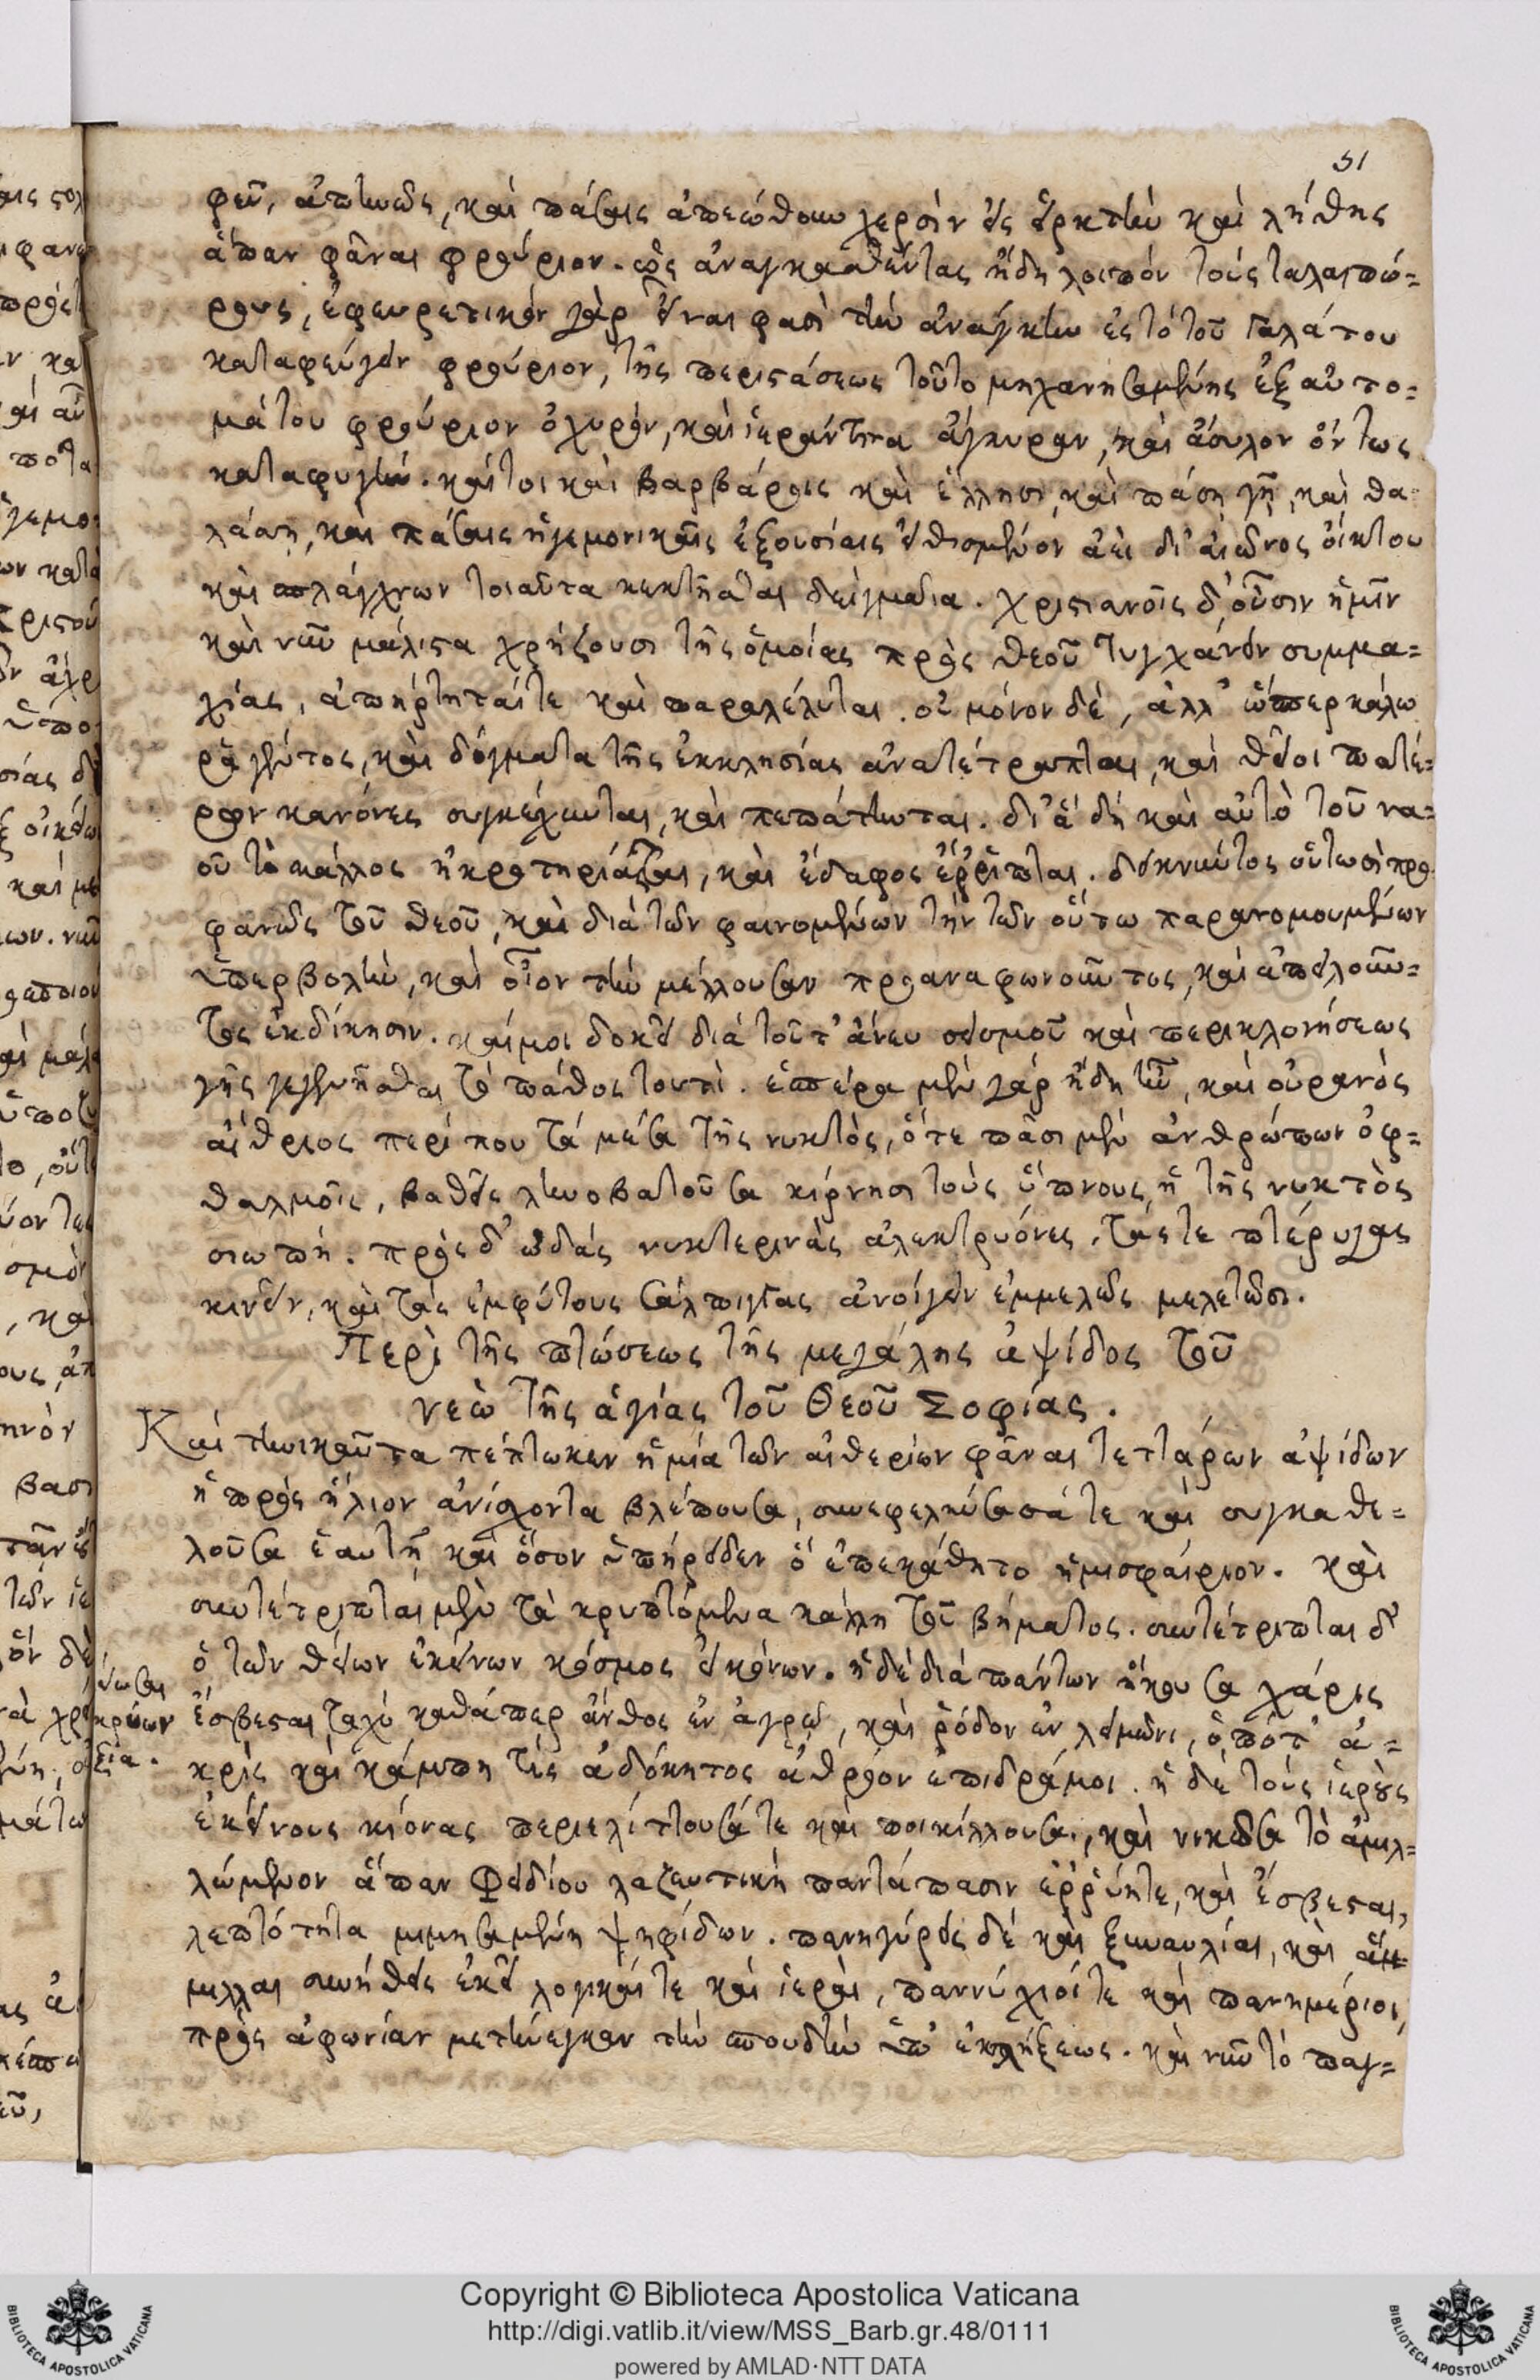 51
φεῦ, ἀπηνῶς, καὶ πάσαις ἀπεώθουν χερσὶν εἰς εἱρκτὴν καὶ λήθης
ἅπαν φᾶναι φρούριον. ὡς ἀναγκασθέντας ἤδη λοιπὸν τοὺς ταλαιπώ-
ρους, ἐφευρετικὸν γὰρ εἶναι φασὶ τὴν ἀνάγκην ἐς τὸ τοῦ Γαλάτου
καταφεύγειν φρούριον, τῆς περιστάσεως τοῦτο μηχανησαμένης ἐξ αὐτο-
μάτου φρούριον ὀχυρὸν, καὶ ἱερὰν τινα ἄγκυραν, καὶ ἄσυλον ὄντως
καταφυγήν. καίτοι καὶ βαρβάροις καὶ ἕλλησι, καὶ πάση γῆ, καὶ θα-
λάσση, καὶ πάσαις ἡγεμονικαῖς ἐξουσίαις εἰθισμένον ἀεὶ δι' αἰῶνος οἴκτου
καὶ σπλάγχνων τοιαῦτα κεκτῆσθαι δείγματα. χριστιανοῖς δ' οὖσιν ἡμῖν
καὶ νῦν μάλιστα χρήζουσι τῆς ὁμοίας πρὸς θεοῦ τυγχάνειν συμμα-
χίας, ἀπήρτηταί τε καὶ παραλέλυται. οὐ μόνον δὲ, ἀλλ' ὥσπερ κάλω
ῥαγέντος, καὶ δόγματα τῆς ἐκκλησίας ἀνατέτραπται, καὶ θεῖοι πατέ-
ρων κανόνες συγκέχυνται, καὶ πεπάτηνται. δι' ἃ δὴ καὶ αὐτὸ τοῦ να-
οῦ τὸ κάλλος ἠκρωτηρίασται, καὶ ἔδαφος ἔρριπται. δεικνύντος οὑτωσὶ προ
φανῶς τοῦ θεοῦ, καὶ διὰ τῶν φαινομένων τὴν τῶν οὕτω παρανομουμένων
ὑπερβολὴν, καὶ οἷον τὴν μέλλουσαν προαναφωνοῦντος, καὶ ἀπειλοῦν-
τος ἐκδίκησιν. καί μοι δοκεῖ διὰ τοῦτ' ἄνευ σεισμοῦ καὶ περικλονήσεως
γῆς γεγενῆσθαι τὸ πάθος τουτί. ἑσπέρα μὲν γὰρ ἤδη ἦν, καὶ οὐρανὸς
αἴθριος περί που τὰ μέσα τῆς νυκτὸς, ὅτε πᾶσι μὲν ἀνθρώπων ὀφ-
θαλμοῖς, βαθεῖς ληνοβατοῦσα κίρνησι τοὺς ὕπνους ἡ τῆς νυκτὸς
σιωπή. πρὸς δ' ᾠδὰς νυκτερινὰς ἀλεκτρυόνες, τάς τε πτέρυγας
κινεῖν, καὶ τὰς ἐμφύτους σάλπιγγας ἀνοίγειν ἐμμελῶς μελετῶσι.
Περὶ τῆς πτώσεως τῆς μεγάλης ἁψίδος τοῦ
νεὼ τῆς ἁγίας τοῦ Θεοῦ Σοφίας.
Καὶ τηνικαῦτα πέπτωκεν ἡ μία τῶν αἰθερίων φᾶναι τεττάρων ἁψίδων
ἡ πρὸς ἥλιον ἀνίσχοντα βλέπουσα, συνεφελκύσασά τε καὶ συγκαθε-
λοῦσα ἑαυτῆ καὶ ὅσον ὑπήρειδεν ὃ ἐπεκάθητο ἡμισφαίριον. καὶ
συντέτριπται μὲν τὰ κρυπτόμενα κάλλη τοῦ βήματος. συντέτριπται δ'
ὁ τῶν θείων ἐκείνων κόσμος εἰκόνων. ἡ δὲ διὰ πάντων ἥκουσα χάρις
ἔσβεσται ταχὺ καθάπερ ἄνθος ἐν ἀγρῷ, καὶ ῥόδον ἐν λειμῶνι, ὁπότ' ἀ-
κρὶς καὶ κάμπη τὶς ἀδόκητος ἀθρόον ἐπιδράμοι. ἡ δὲ τοὺς ἱεροὺς
ἐκείνους κίονας περιελίττουσά τε καὶ ποικίλλουσα, καὶ νικῶσα τὸ ἁμιλ-
λώμενον ἅπαν Φειδίου λαξευτικὴ παντάπασιν ἐρρύη τε, καὶ ἔσβεσται,
λεπτότητα μιμησαμένη ψηφίδων. πανηγύρεις δὲ καὶ ξυναυλίαι, καὶ ἅμ-
μιλλαι συνήθεις ἐκεῖ λογικαί τε καὶ ἱεραὶ, παννύχιοί τε καὶ πανημέριοι,
πρὸς ἀφωνίαν μετήνεγκαν τὴν σπουδὴν ὑπ' ἐκπλήξεως. καὶ νῦν τὸ παγ-
Copyright © Biblioteca Apostolica Vaticana
http://digi.vatlib.it/view/MSS_Barb.gr.48/0111
powered by AMLAD·NTT DATA
BIBLIOTECA APOSTOLICA VATICANA
BIBLIOTECA APOSTOLICA VATICANA